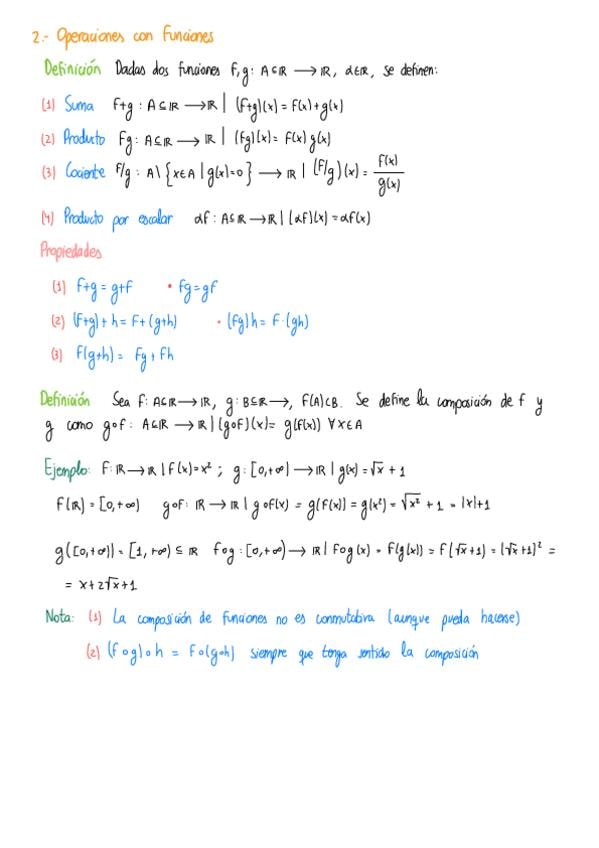 2.- Operaciones con Funciones
Definición Dadas dos funciones f,g: A⊆ℝ → ℝ, α∈ℝ, se definen:
(1) Suma f+g : A⊆ℝ → ℝ | (f+g)(x) = f(x)+g(x)
(2) Producto fg : A⊆ℝ → ℝ | (fg)(x) = f(x) g(x)
(3) Cociente f/g : A\{x∈A | g(x)=0} → ℝ | (f/g)(x) = f(x)/g(x)
(4) Producto por escalar αf : A⊆ℝ → ℝ | (αf)(x) = αf(x)
Propiedades
(1) f+g = g+f • fg = gf
(2) (f+g)+h = f+(g+h) • (fg)h = f·(gh)
(3) f(g+h) = fg + fh
Definición Sea f: A⊆ℝ → ℝ, g: B⊆ℝ →, f(A)⊂B. Se define la composición de f y
g como g∘f : A⊆ℝ → ℝ | (g∘f)(x) = g(f(x)) ∀x∈A
Ejemplo: f: ℝ → ℝ | f(x)=x² ; g: [0,+∞) → ℝ | g(x) = √x + 1
f(ℝ) = [0,+∞) g∘f: ℝ → ℝ | g∘f(x) = g(f(x)) = g(x²) = √x² + 1 = |x|+1
g([0,+∞)) = [1,+∞) ⊆ ℝ f∘g : [0,+∞) → ℝ | f∘g(x) = f(g(x)) = f(√x+1) = (√x+1)² =
= x+2√x+1
Nota: (1) La composición de funciones no es conmutativa (aunque pueda hacerse)
(2) (f∘g)∘h = f∘(g∘h) siempre que tenga sentido la composición